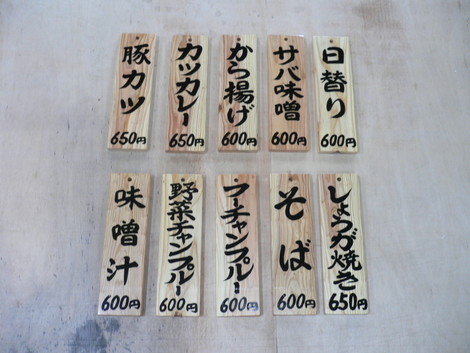 日替り
600円
サバ味噌
600円
から揚げ
600円
カツカレー
650円
豚カツ
650円
しょうが焼き
650円
そば
600円
フーチャンプルー
600円
野菜チャンプルー
600円
味噌汁
600円